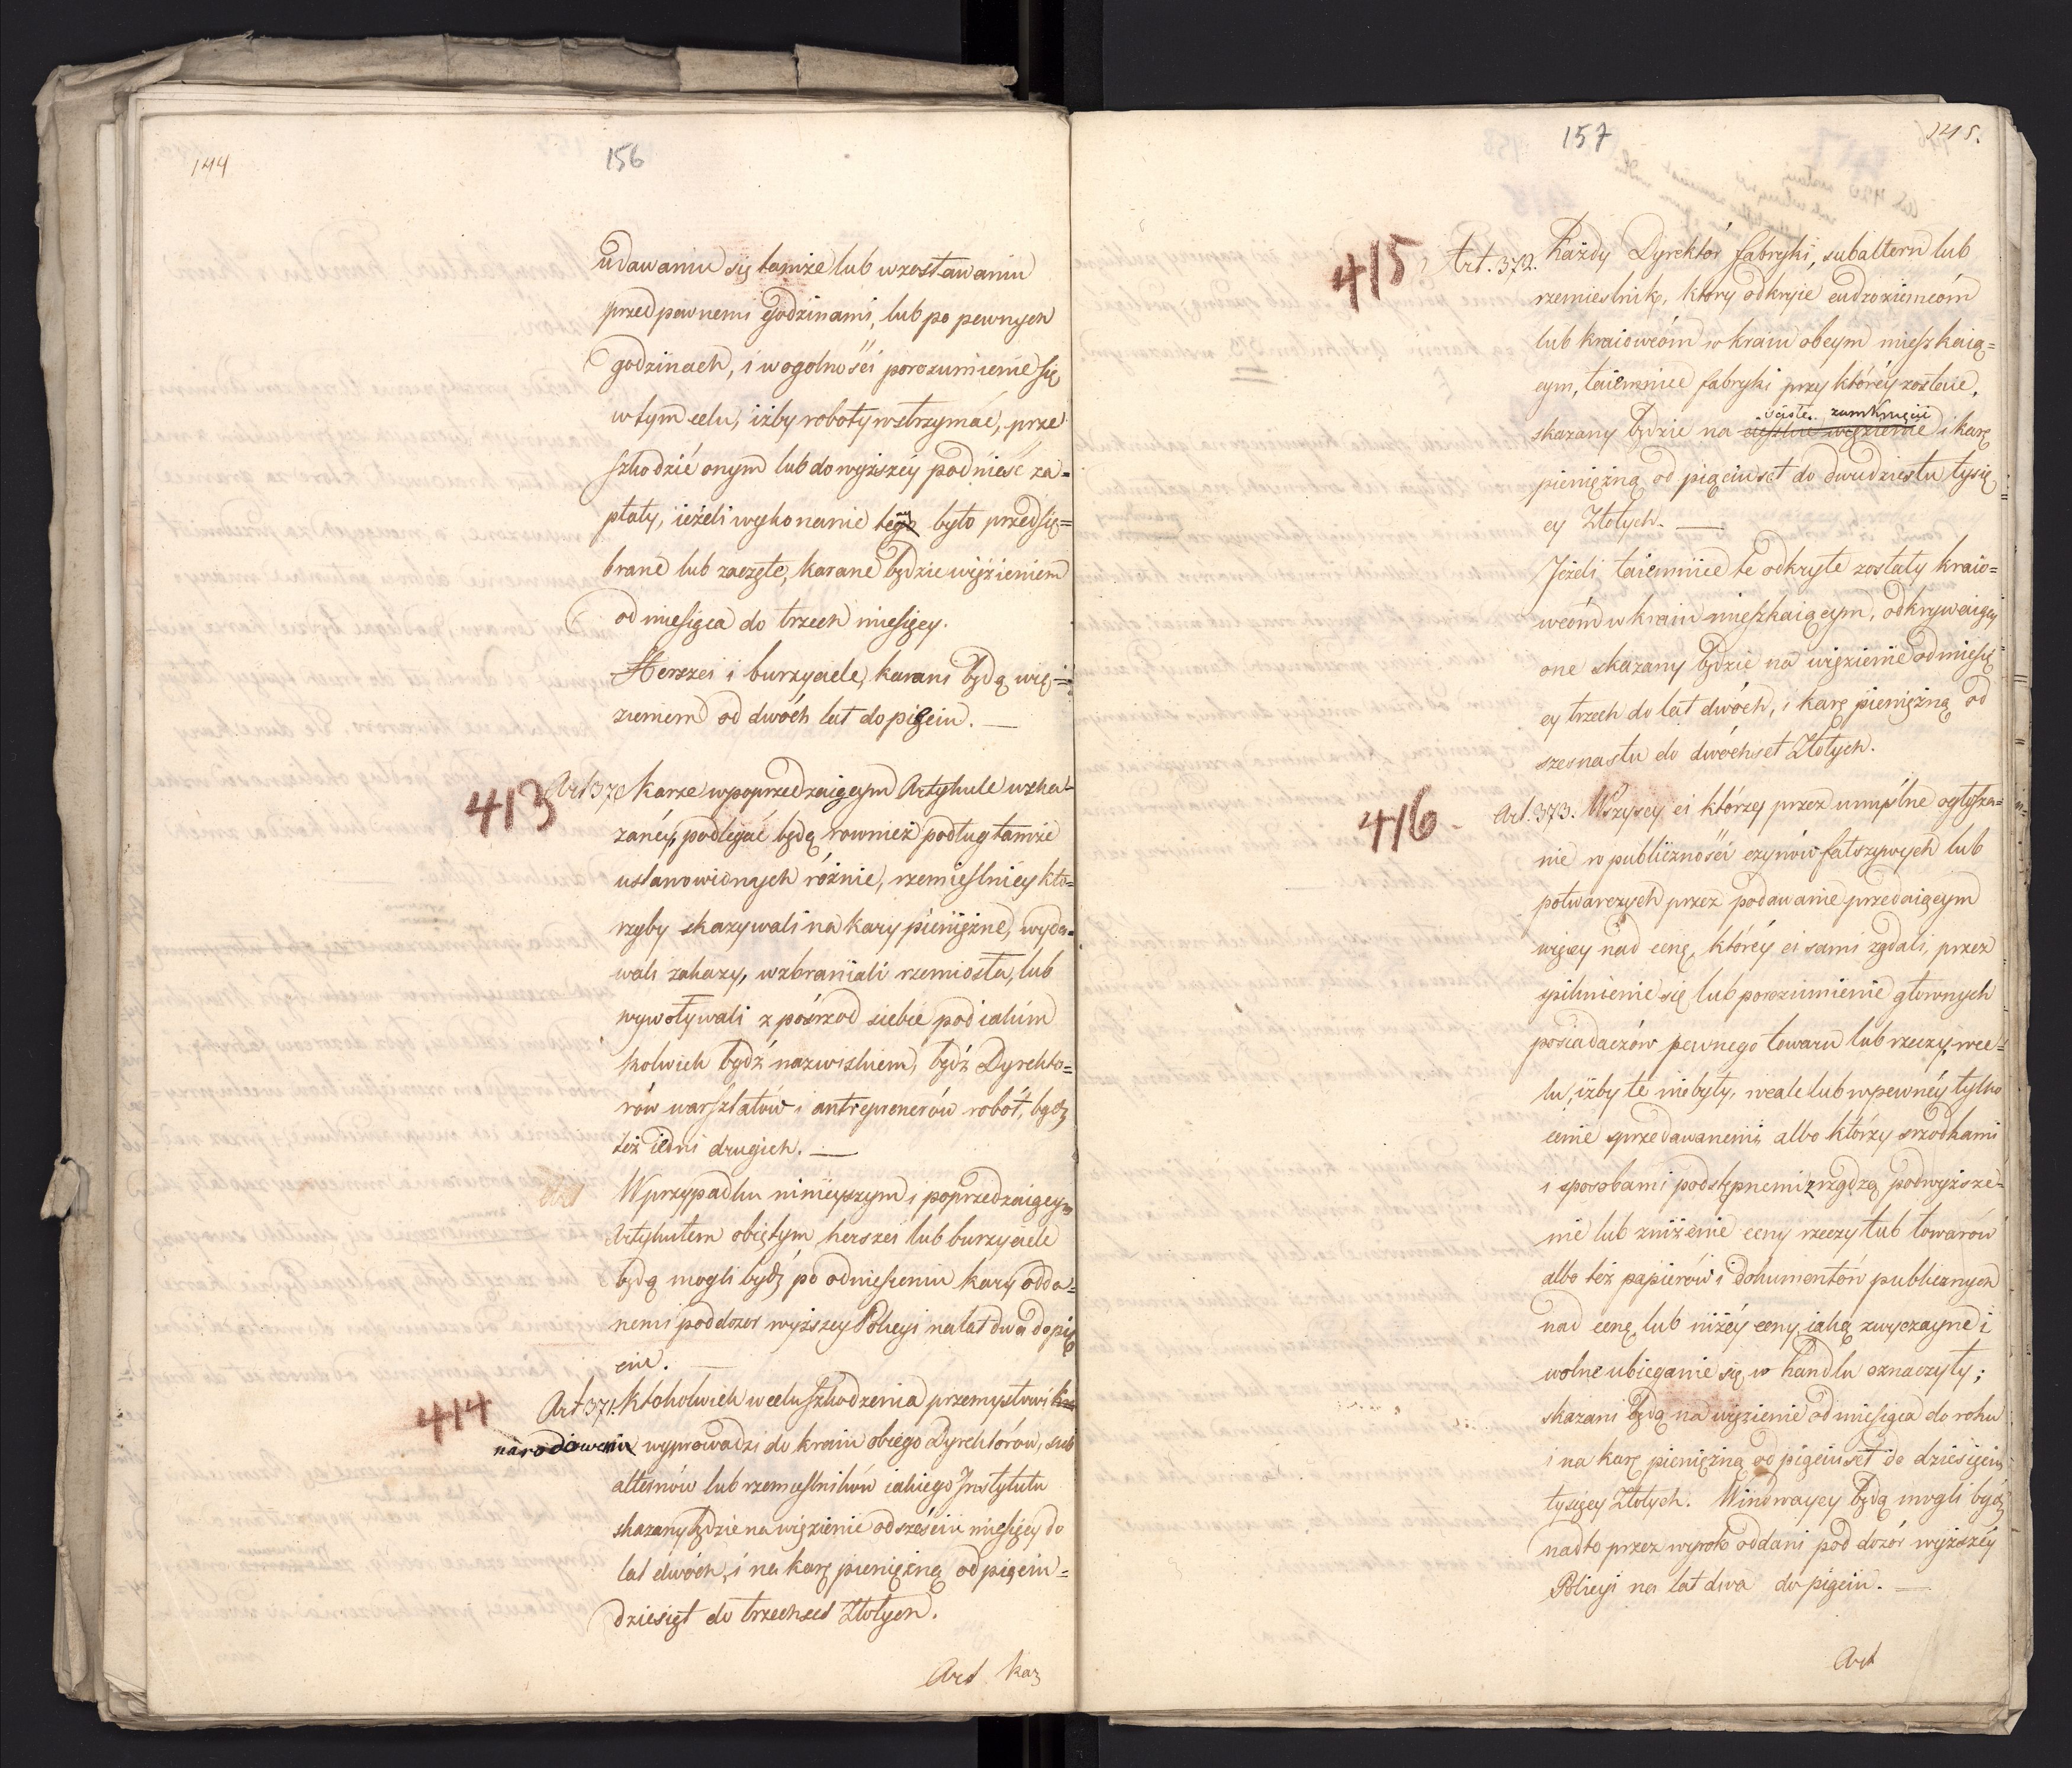 144
156
udawaniu się tamże lub wzostawaniu
przed pewnemi godzinami, lub po pewnych
godzinach, i w ogolności porozumienie się
w tym celu, iżby roboty wstrzymać, prze
szkodzić onym lub do wyższéy podnieść za=
płaty, ieżeli wykonanie tego było przedsię=
brane lub zaczęte, karane będzie więzieniem
od miesiąca do trzech miesięcy.
Herszci i burzyciele, karani będą wię=
zieniem od dwóch lat do pięciu. —
413
Art 370 Karze w poprzedzaiącym Artykule wska=
zanéy, podlegać będą rownież podług tamże
ustanowionych różnic, rzemieślnicy któ=
rzyby skazywali na kary pieniężne, wyda=
wali zakazy, wzbraniali rzemiosła, lub
wywoływali z pośrzod siebie pod iakim
kolwiek bądź nazwiskiem, bądź Dyrekto=
rów warsztatów i antreprenerów robót, bądź
też iedni drugich. —
W przypadku ninieyszym i poprzedzaiącym
Artykułem obiętym herszci lub burzyciele
będą mogli bydź po odniesieniu kary odda=
nemi pod dozor wyższey Policyi na lat dwa do pię
ciu. —
414
Art 371. Ktokolwiek w celu szkodzenia przemysłowi kra
narodowemu wyprowadzi do kraiu obcego Dyrektórow, sub
alternów lub rzemieślników iakiego Instytutu
skazany będzie na więzienie od sześciu miesięcy do
lat dwóch, i na karę pieniężną od pięciu=
dziesiąt do trzechset Złotych.
Art Każ
157
145.
415
Art. 372. Każdy Dyrektor fabryki, subaltern lub
rzemieślnik, który odkryie cudzoziemcóm
lub kraiowcóm w kraiu obcym mieszkaią=
cym, taiemnice fabryki przy któréy zostaie,
ścisłe zamknięcie
skazany będzie na ciężkie więzienie i karę
pieniężną od pięciuset do dwudziestu tysię
cy Złotych. —
Jeżeli taiemnice te odkryte zostały kraio=
wcóm w kraiu mieszkaiącym, odkrywaiący
one skazany będzie na więzienie od miesię
cy trzech do lat dwóch, i karę pieniężną od
szesnastu do dwóchset Złotych.
416
Art. 373. Wszyscy ci którzy przez umyślne ogłysza=
nie w publiczności czynów fałszywych lub
potwarczych przez podawanie przedaiącym
więcey nad cenę, któréy ci sami żądali, przez
spiknienie się lub porozumienie głownych
posiadaczów pewnego towaru lub rzeczy, w ce=
lu, iżby te nie były, wcale lub w pewnéy tylko
cenie sprzedawanemi, albo którzy srzodkami
i sposobami podstępnemi zrządzą podwyższe=
nie lub zniżenie ceny rzeczy lub towarów
albo też papierów i dokumentów publicznych
nad cenę lub niżéy ceny iaką zwyczayne i
wolne ubieganie się w handlu oznaczyły;
skazani będą na więzienie od miesiąca do roku
i na karę pieniężną od pięciuset do dziesięciu
tysięcy Złotych. Winowaycy będą mogli bydź
nadto przez wyrok oddani pod dozór wyższéy
Policyi na lat dwa do pięciu. —
Art